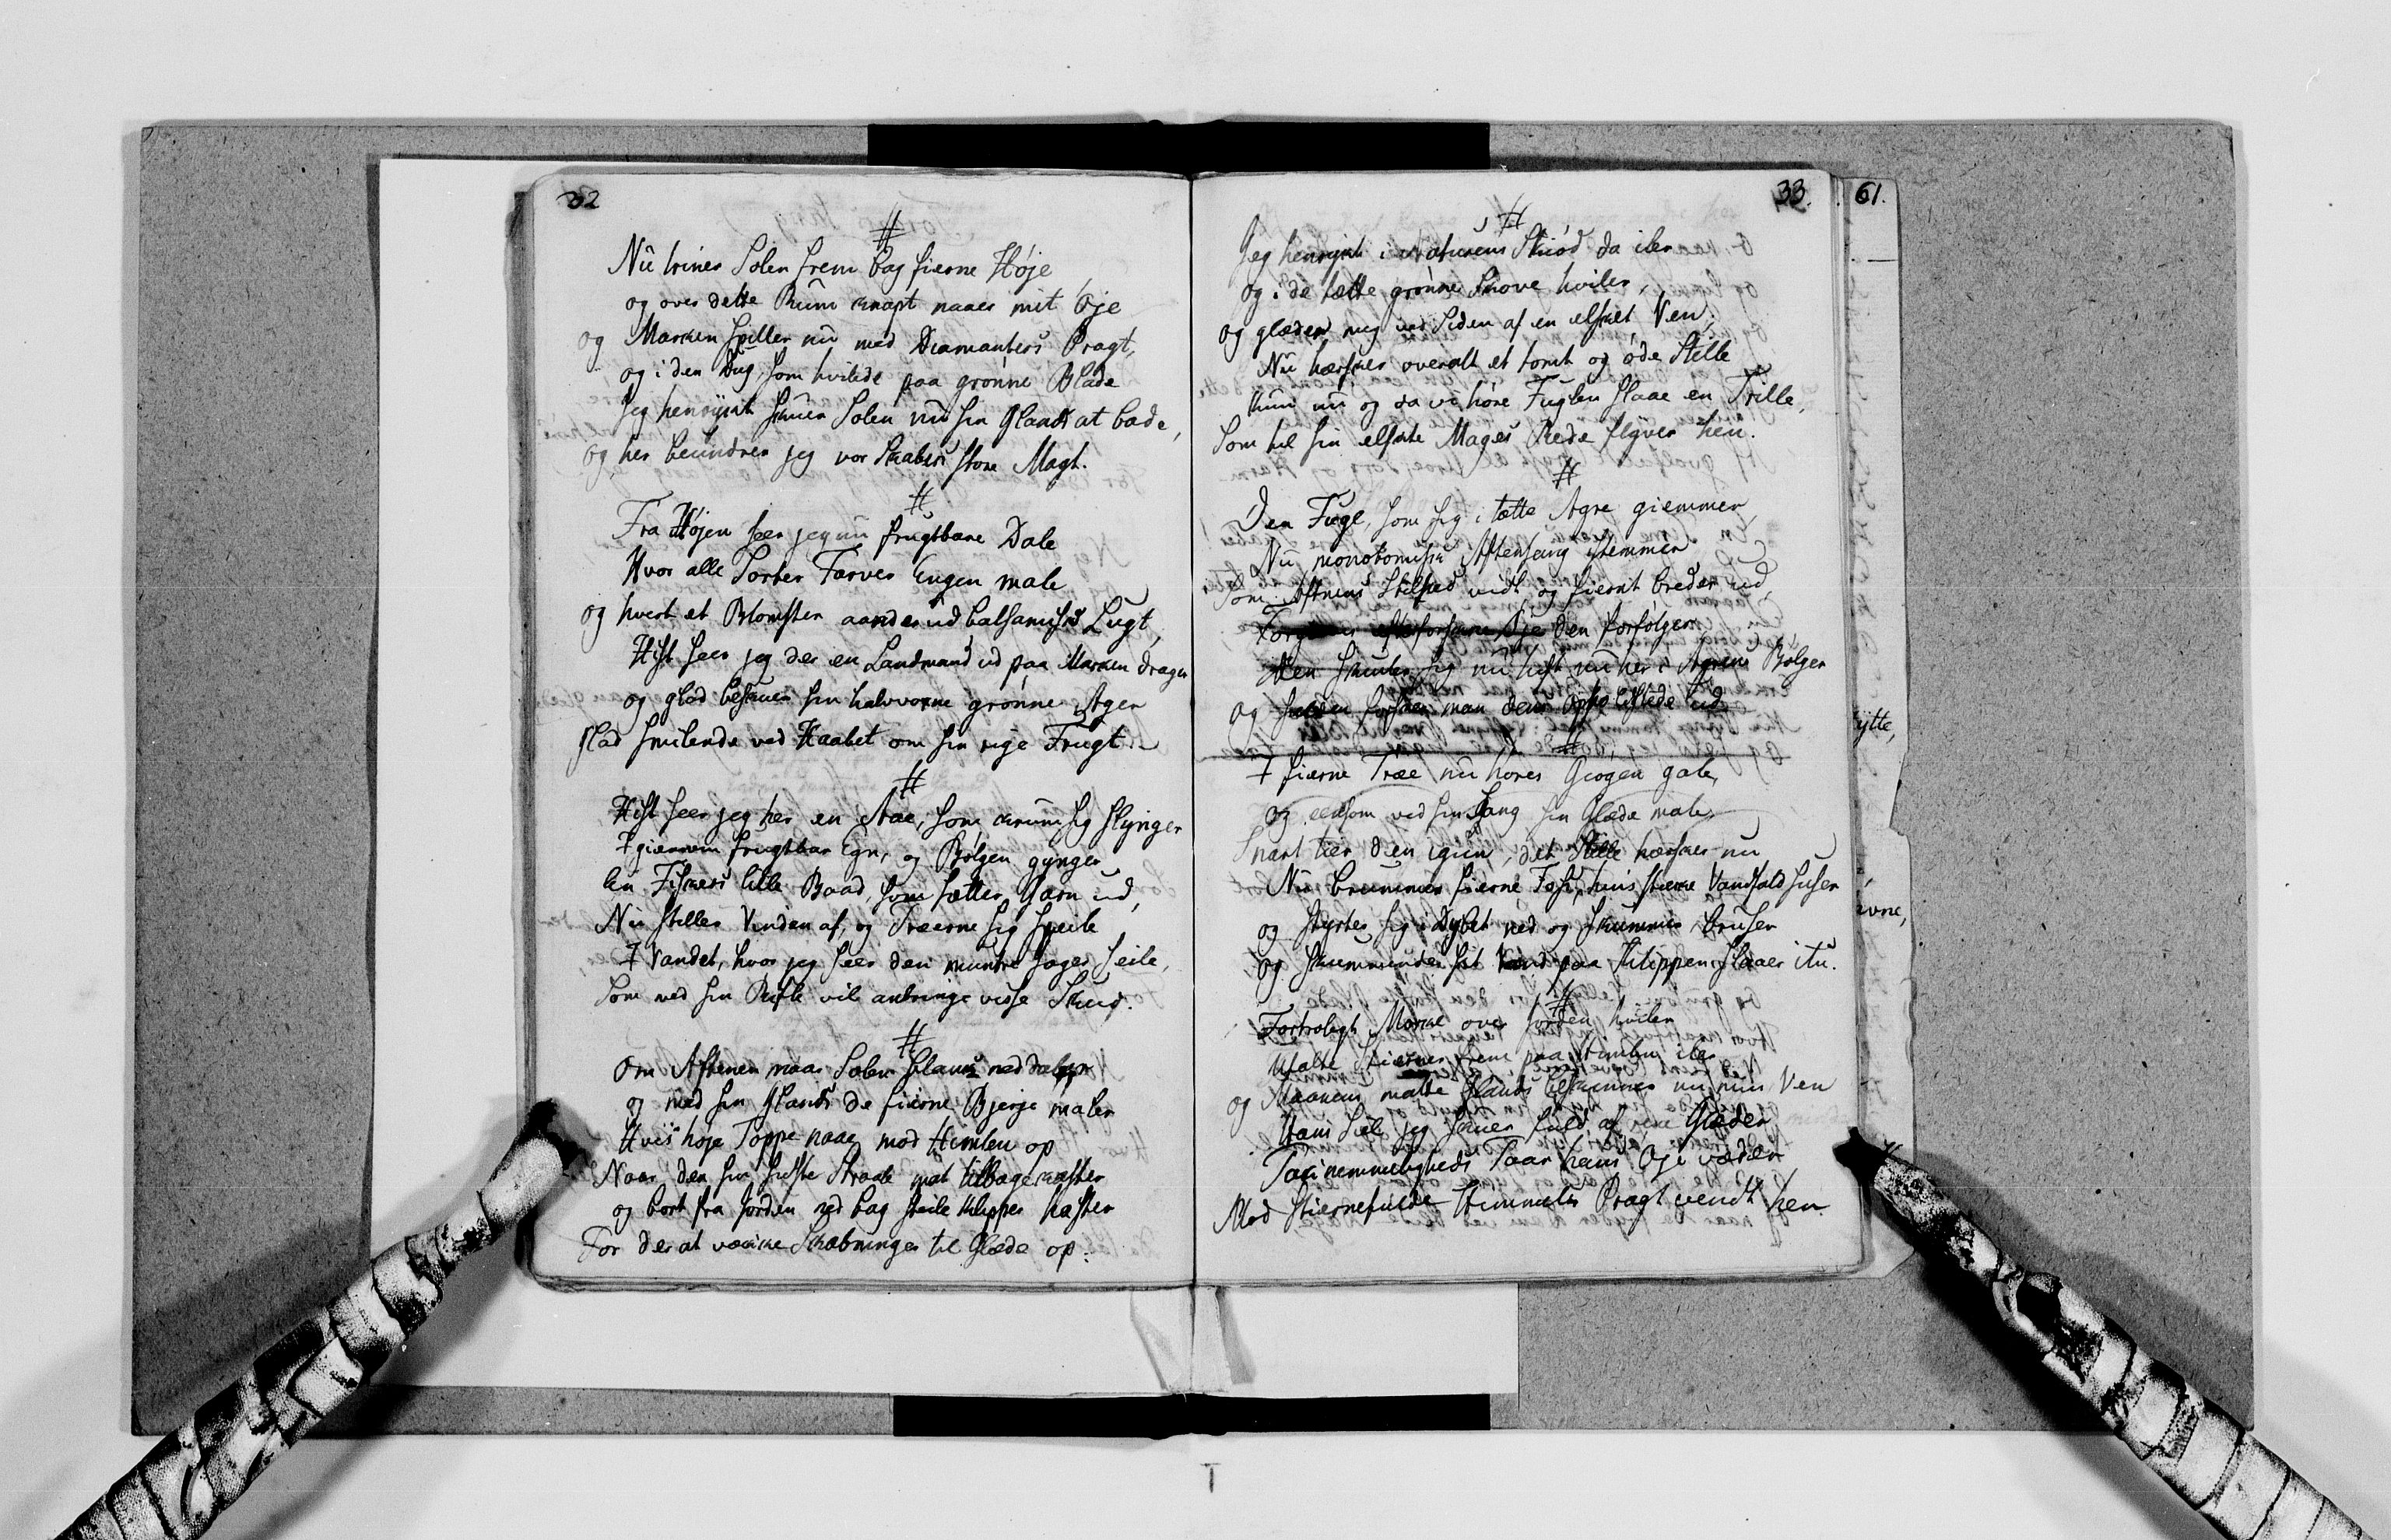 32
#
Nu trines Solen frem bag fierne Høje
og over dette Rum knapt naaer mit Øje
og Marken spiller nu med Diamanters Pragt,
og i den Dug, som hvilede paa grønne Blade
Jeg henrykt skuer Solen nu sin Glands at bade,
og her beundrer jeg vor Skabers store Magt.
#
Fra Højen seer jeg nu frugtbare Dale
Hvor alle Sorter Farver Engen male
og hvert et Blomster aander ud balsamisk Lugt,
Hist seer jeg der en Landmand ud paa Marken drager
og glad beskuer sin halvvoxne grønne Ager
glad smilende ved Haabet om sin rige Frugt
#
Hist seer jeg her en Aae, som krum sig slynger
I giennem frugtbar Egn, og Bølgen gynger
En Fiskers lille Baad, som sætter Garn ud,
Nu stiller Vinden af, og Træerne sig speile
I Vandet, hvor jeg seer den muntre Jæger seile,
Som med sin Rifle vil anbringe visse Skud.
#
Om Aftenen naar Solen ned daler
og med sin Glands de fierne Bjerge maler
Hvis høje Toppe naaer mod Himlen op
Naar den sin sidste Straale mat tilbagekaster
og bort fra Jorden ned bag steile Klipper haster
For der at vække Skabninger til Glæde op.
33.
#
Jeg henrykt i Naturens Skiød da iler
og i de tætte grønne Skove hviler,
og glæder mig ved Siden af en elsket Ven,
Nu hersker overalt et tomt og øde Stille
Kun nu og da vi høre Fuglen slaae en Trille,
Som til sin elskte Mages Rede flyver hen.
#
Den Fugl, som sig i tætte Agre giemmer
Nu monotonisk Aftensang istemmer
Som Aftnens Stilhed vidt og fiernt breder ud,
Øje den forfølger
Den skiuler sig nu hist nu her i Agrens Bølger
og man den ud
#
I fierne Træe nu høres Giøgen gale,
og eensom ved sin Sang sin Glæde male,
Snart tier den igien, det Stille hersker nu
Nu brummer fierne Foss, hvis stærke Vandfald suser
og styrter sig i Dybet ned og skummer, bruser
og skummende sit Vand paa Klippen slaaer itu.
#
Fortroligt Mørke over Jorden hviler
Matte Stierner frem paa Himlen iler
og Maanens matte Glands beskinner nu min Ven
Hans Siel jeg skuer fuld af rene Glæder
Taknemmeligheds Taar hans Øje væder
Mod stiernefulde Himmels Pragt vendt hen.
61.
ytte,
vne,